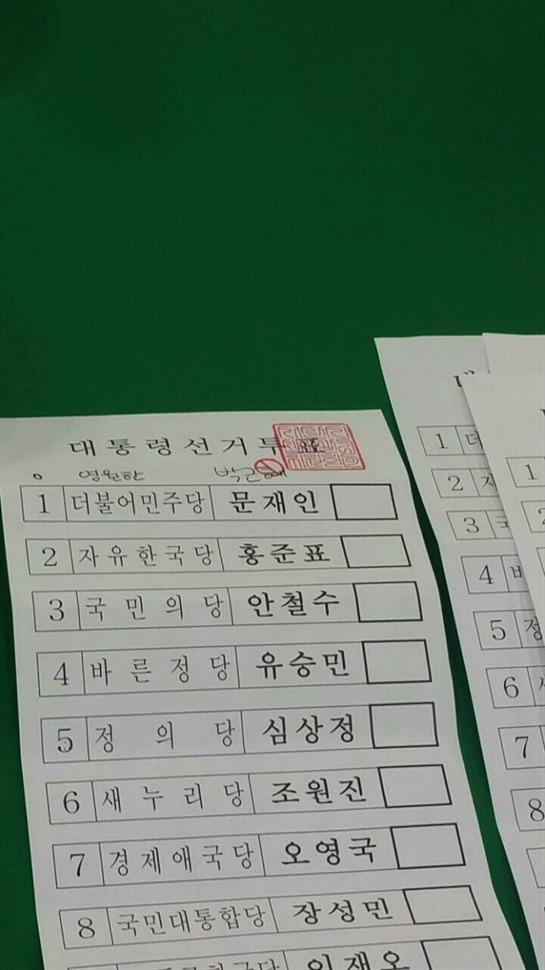 대통령선거투표
0 영원한 박근혜
1 더불어민주당 문재인
2 자유한국당 홍준표
3 국민의당 안철수
4 바른정당 유승민
5 정의당 심상정
6 새누리당 조원진
7 경제애국당 오영국
8 국민대통합당 장성민
이재오
1 더
2 자
3 국
4 바
5 정
6
7
8
1
2